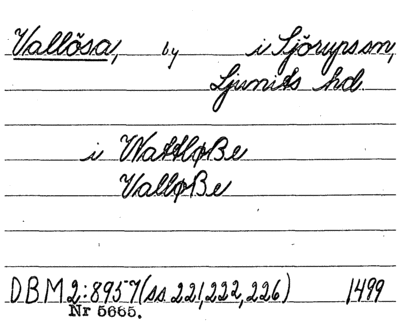 Vallösa, by i Sjörups sn,
Ljunits hd.
i WattløBe
ValløBe
DBM 2:8957 (ss 221, 222, 226) 1499
Nr 5665.